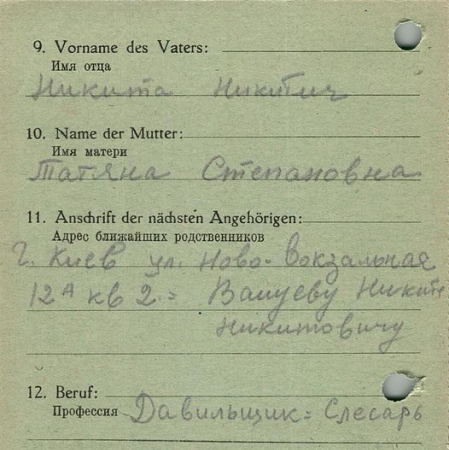 9. Vorname des Vaters:
Имя отца
Никита Никитич
10. Name der Mutter:
Имя матери
Татяна Степановна
11. Anschrift der nächsten Angehörigen:
Адрес ближайших родственников
г. Киев ул. Ново-Вокзальная
12А кв 2 = Валуеву Никите
Никитовичу
12. Beruf:
Профессия Давильщик = Слесарь